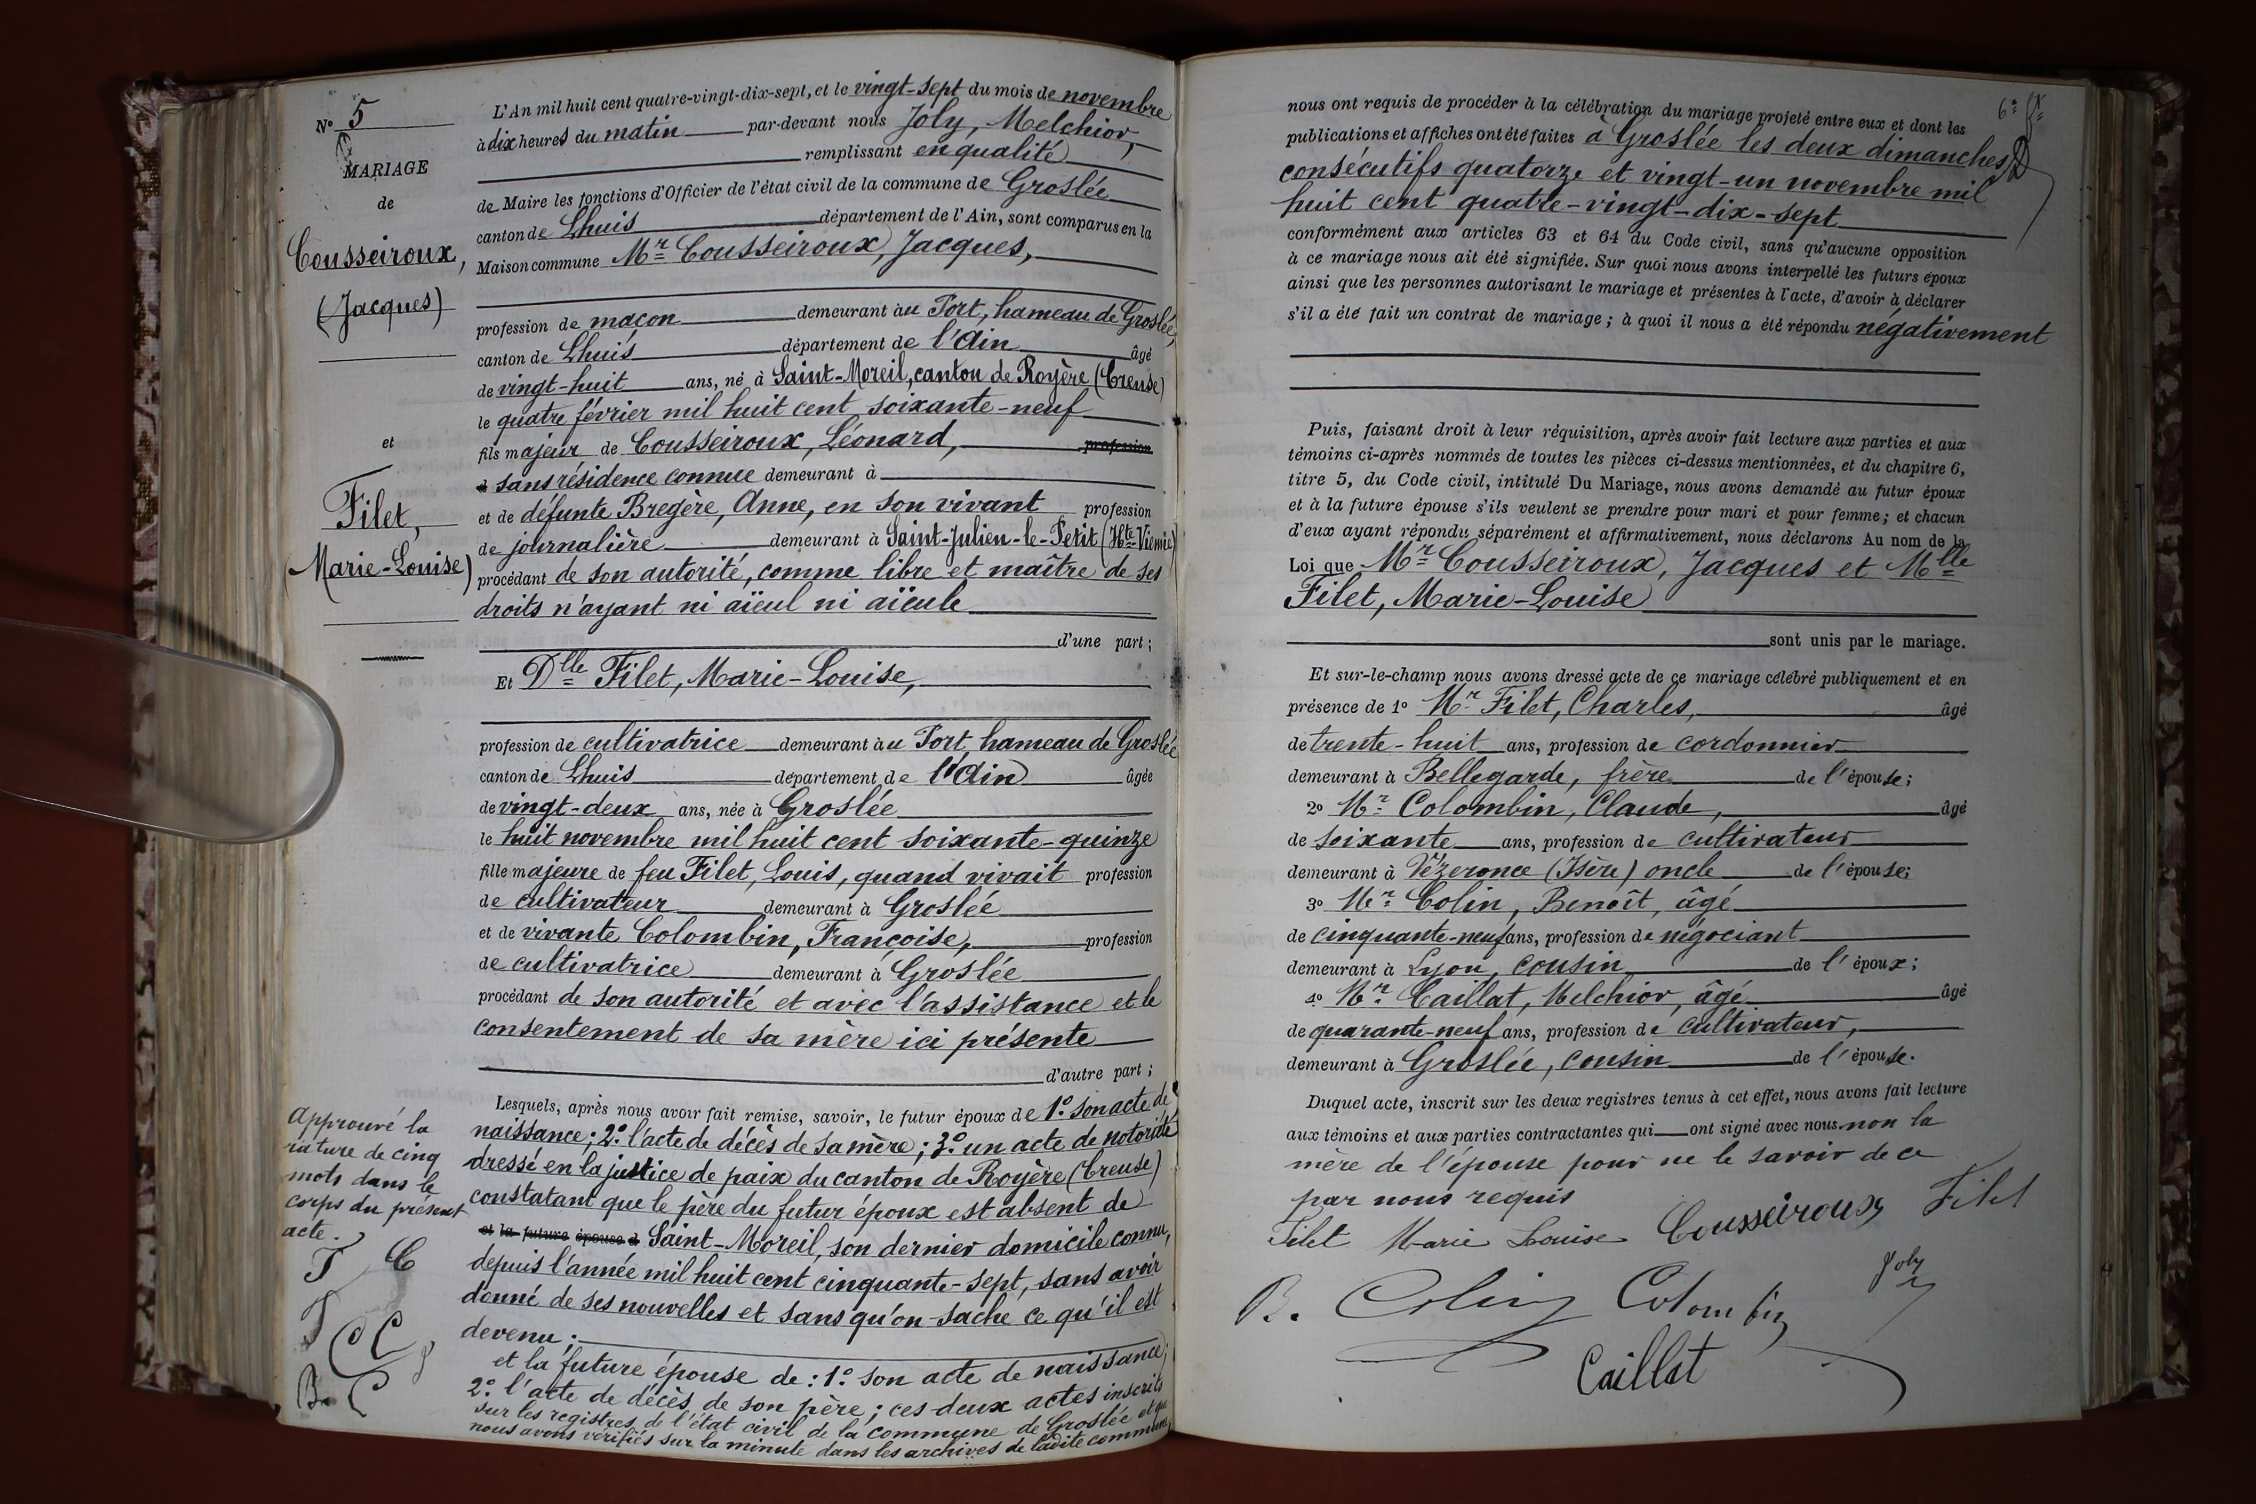 N° 5
MARIAGE
de
Cousseiroux,
(Jacques)
et
Filet,
Marie-Louise)
L'An mil huit cent quatre-vingt-dix-sept, et le vingt-sept du mois de novembre
à dix heures du matin par-devant nous Joly, Melchior,
remplissant en qualité
de Maire les fonctions d'Officier de l'état civil de la commune de Groslée
canton de Lhuis département de l'Ain, sont comparus en la
Maison commune Mr Cousseiroux, Jacques,
profession de maçon demeurant àu Port, hameau de Groslée,
canton de Lhuis département de l'Ain âgé
de vingt-huit ans, né à Saint-Moreil, canton de Royère (Creuse)
le quatre février mil huit cent soixante-neuf
fils majeur de Cousseiroux, Léonard, profession
d sans résidence connue demeurant à
et de défunte Bregère, Anne, en son vivant profession
de journalière demeurant à Saint-Julien-le-Petit (Hte Vienne)
procédant de son autorité, comme libre et maître de ses
droits n'ayant ni aïeul ni aïeule
d'une part ;
Et Dlle Filet, Marie-Louise,
profession de cultivatrice demeurant àu Port hameau de Groslée
canton de Lhuis département de l'Ain âgée
de vingt-deux ans, née à Groslée
le huit novembre mil huit cent soixante-quinze
fille majeure de feu Filet, Louis, quand vivait profession
de cultivateur demeurant à Groslée
et de vivante Colombin, Françoise, profession
de cultivatrice demeurant à Groslée
procédant de son autorité et avec l'assistance et le
consentement de sa mère ici présente
d'autre part ;
Lesquels, après nous avoir fait remise, savoir, le futur époux de 1° son acte de
naissance ; 2° l'acte de décès de sa mère ; 3° un acte de notoriété
dressé en la justice de paix du canton de Royère (Creuse)
constatant que le père du futur époux est absent de
et la future épouse d Saint-Moreil, son dernier domicile connu,
depuis l'année mil huit cent cinquante-sept, sans avoir
donné de ses nouvelles et sans qu'on sache ce qu'il est
devenu ;
et la future épouse de : 1° son acte de naissance ;
2° l'acte de décès de son père ; ces deux actes inscrits
sur les registres de l'état civil de la commune de Groslée et que
nous avons vérifiés sur la minute dans les archives de ladite commune,
Approuvé la
rature de cinq
mots dans le
corps du présent
acte.
F C
J
CC
B. C
6e
nous ont requis de procéder à la célébration du mariage projeté entre eux et dont les
publications et affiches ont été faites à Groslée les deux dimanches
consécutifs quatorze et vingt-un novembre mil
huit cent quatre-vingt-dix-sept
conformément aux articles 63 et 64 du Code civil, sans qu'aucune opposition
à ce mariage nous ait été signifiée. Sur quoi nous avons interpellé les futurs époux
ainsi que les personnes autorisant le mariage et présentes à l'acte, d'avoir à déclarer
s'il a été fait un contrat de mariage ; à quoi il nous a été répondu négativement
Puis, faisant droit à leur réquisition, après avoir fait lecture aux parties et aux
témoins ci-après nommés de toutes les pièces ci-dessus mentionnées, et du chapitre 6,
titre 5, du Code civil, intitulé Du Mariage, nous avons demandé au futur époux
et à la future épouse s'ils veulent se prendre pour mari et pour femme ; et chacun
d'eux ayant répondu séparément et affirmativement, nous déclarons Au nom de la
Loi que Mr Cousseiroux, Jacques et Mlle
Filet, Marie-Louise
sont unis par le mariage.
Et sur-le-champ nous avons dressé acte de ce mariage célébré publiquement et en
présence de 1° Mr Filet, Charles, âgé
de trente-huit ans, profession de cordonnier
demeurant à Bellegarde, frère de l'épouse ;
2° Mr Colombin, Claude, âgé
de soixante ans, profession de cultivateur
demeurant à Vézeronce (Isère) oncle de l'épouse ;
3° Mr Colin, Benoît, âgé
de cinquante-neuf ans, profession de négociant
demeurant à Lyon, cousin de l'époux ;
4° Mr Caillat, Melchior, âgé âgé
de quarante-neuf ans, profession de cultivateur,
demeurant à Groslée, cousin de l'épouse.
Duquel acte, inscrit sur les deux registres tenus à cet effet, nous avons fait lecture
aux témoins et aux parties contractantes qui ont signé avec nous non la
mère de l'épouse pour ne le savoir de ce
par nous requis
Filet Marie Louise Cousseiroux Filet
B. Colin Colombin Joly
Caillat